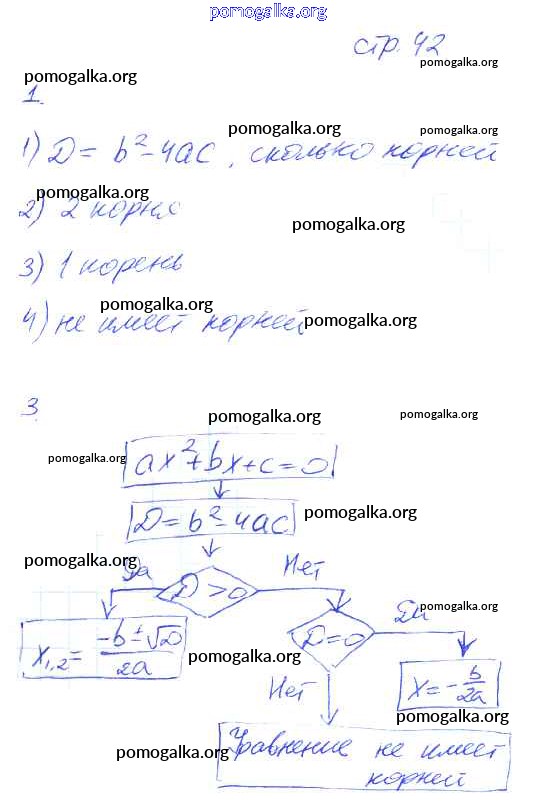 pomogalka.org
стр. 42
pomogalka.org
pomogalka.org
1.
pomogalka.org
pomogalka.org
1) D = b² - 4ac, сколько корней
pomogalka.org
2) 2 корня
pomogalka.org
3) 1 корень
pomogalka.org
4) не имеет корней
pomogalka.org
3.
pomogalka.org
pomogalka.org
pomogalka.org
ax² + bx + c = 0
D = b² - 4ac
pomogalka.org
pomogalka.org
Да
D > 0
Нет
pomogalka.org
x₁,₂ = (-b ± √D) / 2a
D = 0
Да
pomogalka.org
Нет
x = -b/2a
pomogalka.org
Уравнение не имеет
pomogalka.org
корней